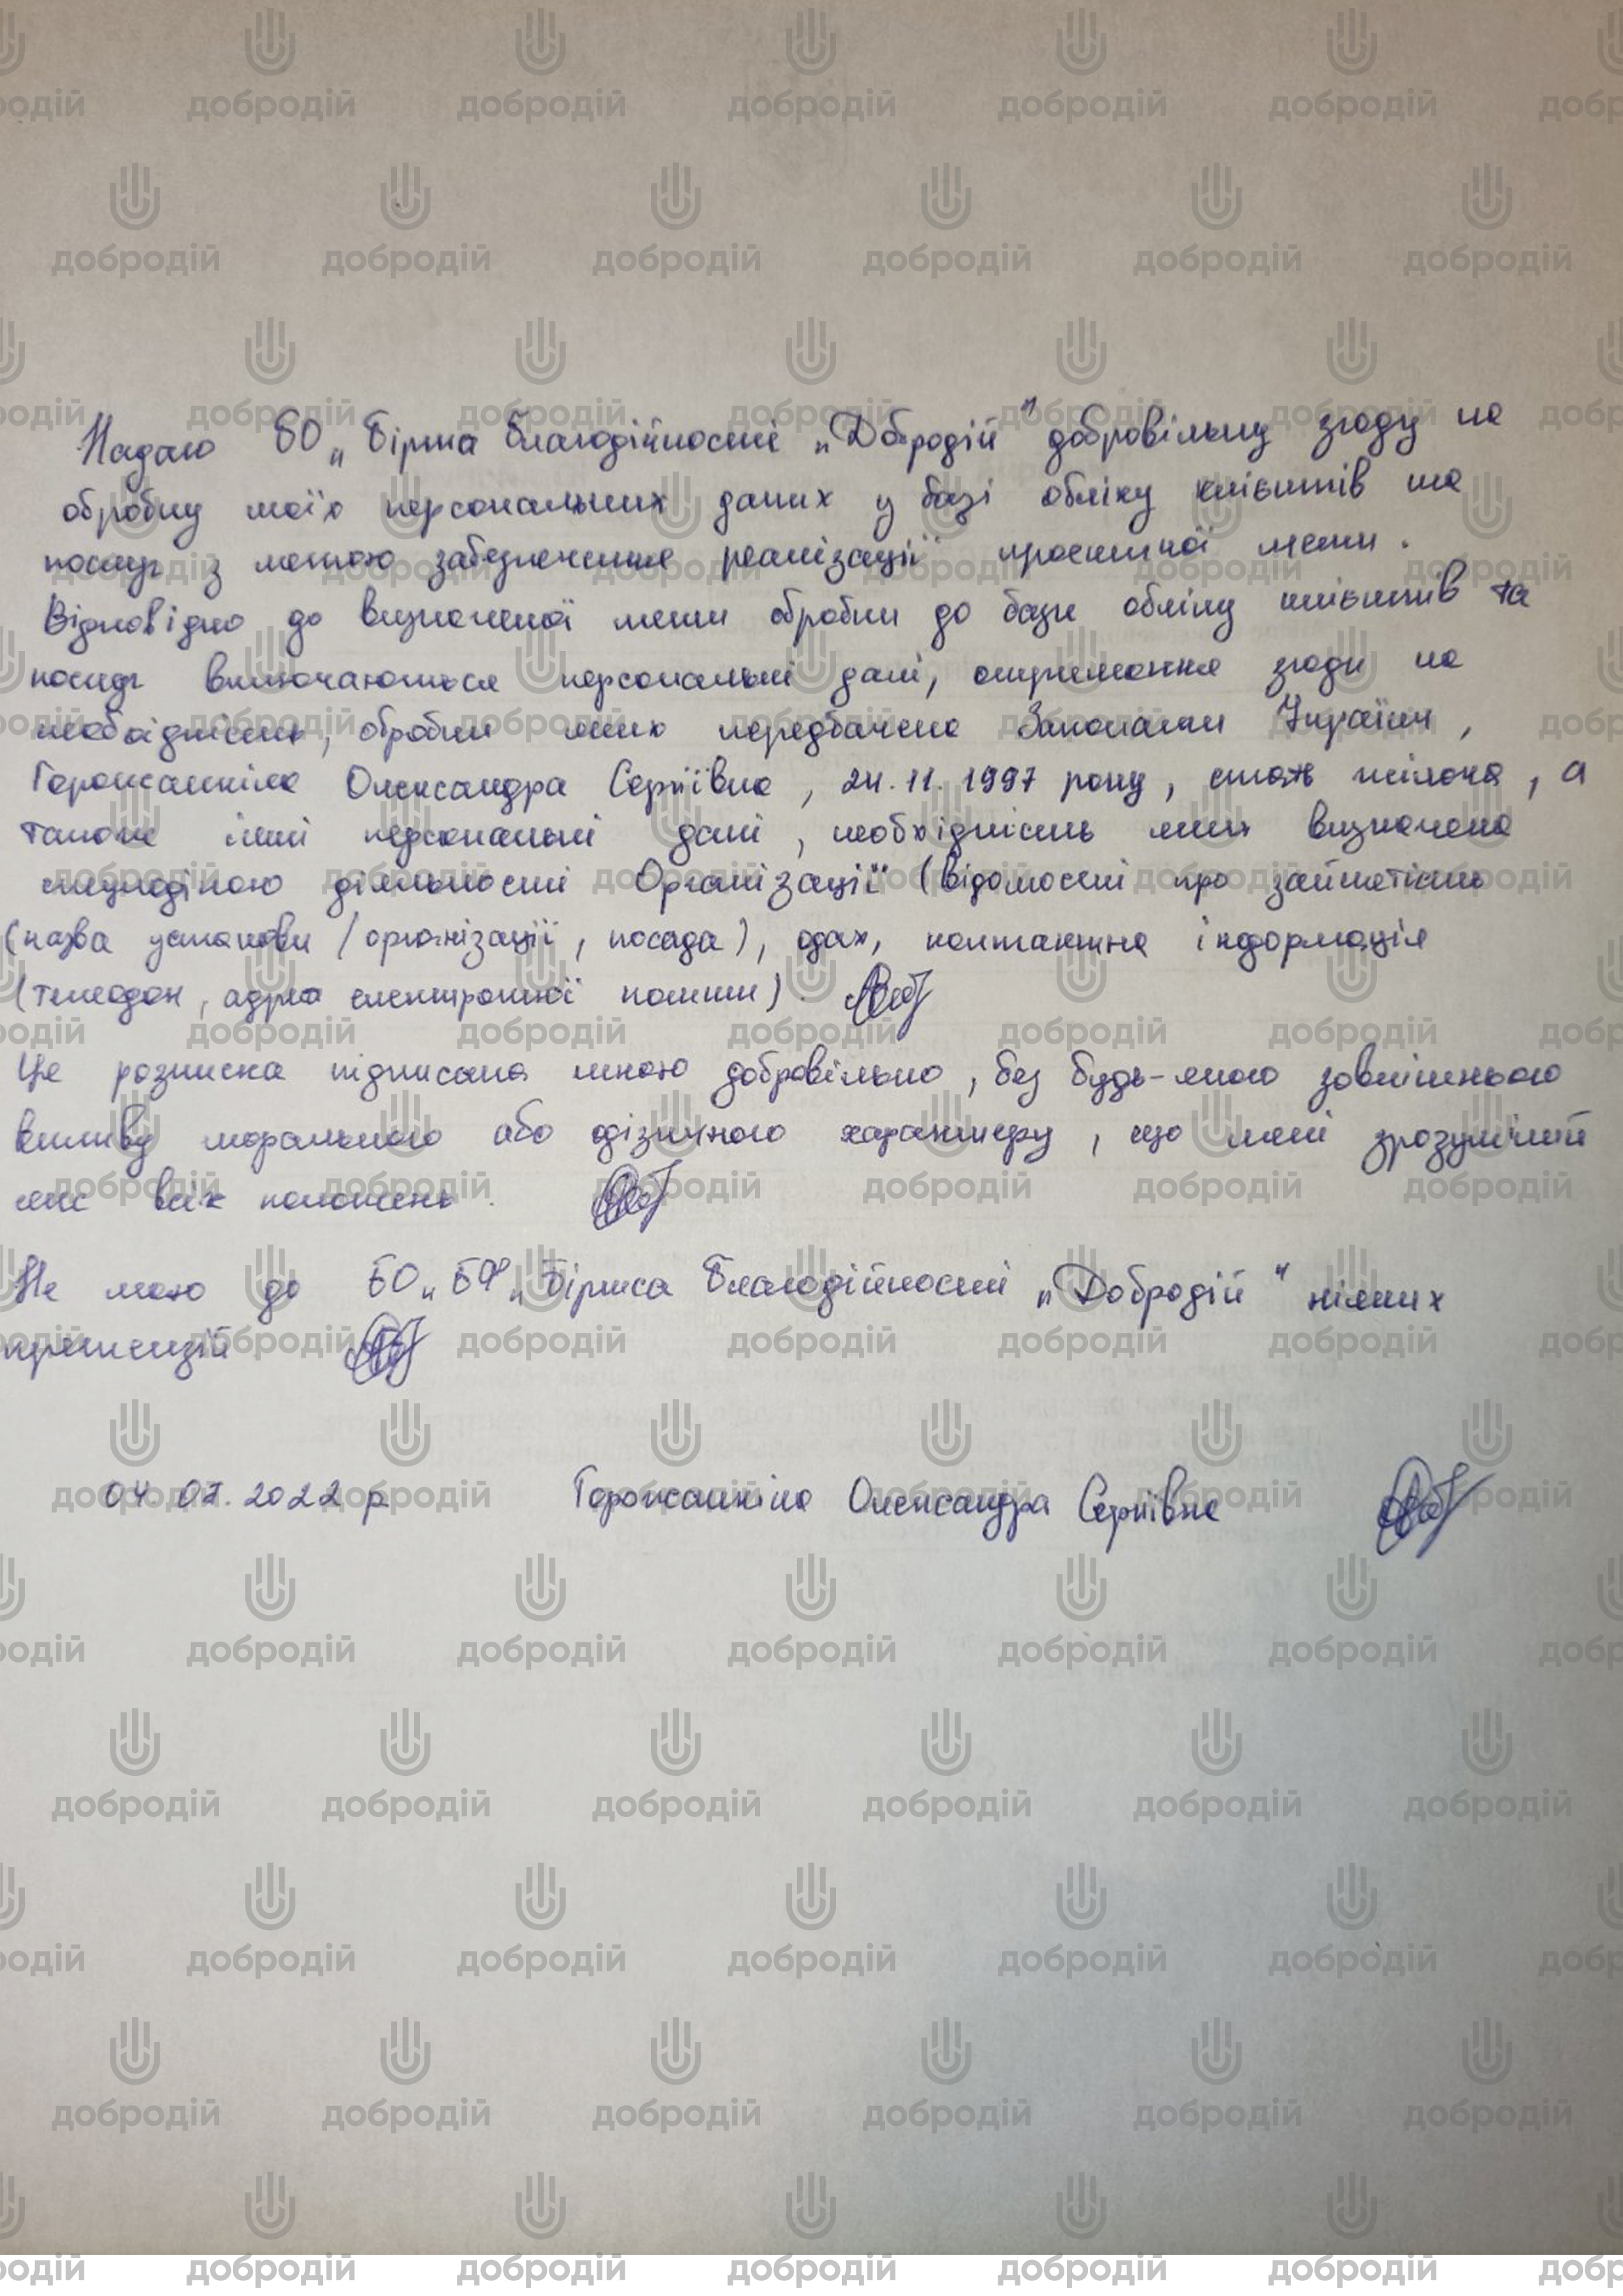 Надаю БО „Біржа Благодійності „Добродій" добровільну згоду на
обробку моїх персональних даних у базі обліку клієнтів та
послуг з метою забезпечення реалізації проектної мети.
Відповідно до визначеної мети обробки до бази обліку клієнтів та
послуг включаються персональні дані, отримання згоди на
необхідність, обробки яких передбачено Законами України,
Горожанкіна Олександра Сергіївна, 24.11.1997 року, стать жіноча, а
також інші персональні дані, необхідність яких визначена
специфікою діяльності Організації (відомості про зайнятість
(назва установи / організації, посада), фах, контактна інформація
(телефон, адреса електронної пошти).
Це розписка підписана мною добровільно, без будь-якого зовнішнього
впливу морального або фізичного характеру, що мені зрозумілий
зміс всіх положень.
Не маю до БО „БФ „Біржа Благодійності „Добродій" ніяких
претензій
04.07.2022 р. Горожанкіна Олександра Сергіївна
добродій